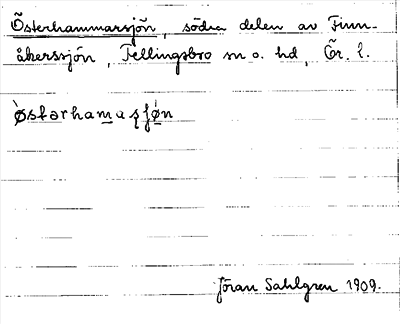 Österhammarsjön, södra delen av Finn-
åkerssjön, Fellingsbro sn o. hd, Ör. l.
ø̀stərhamaʂʃø̀n
Jöran Sahlgren 1909.